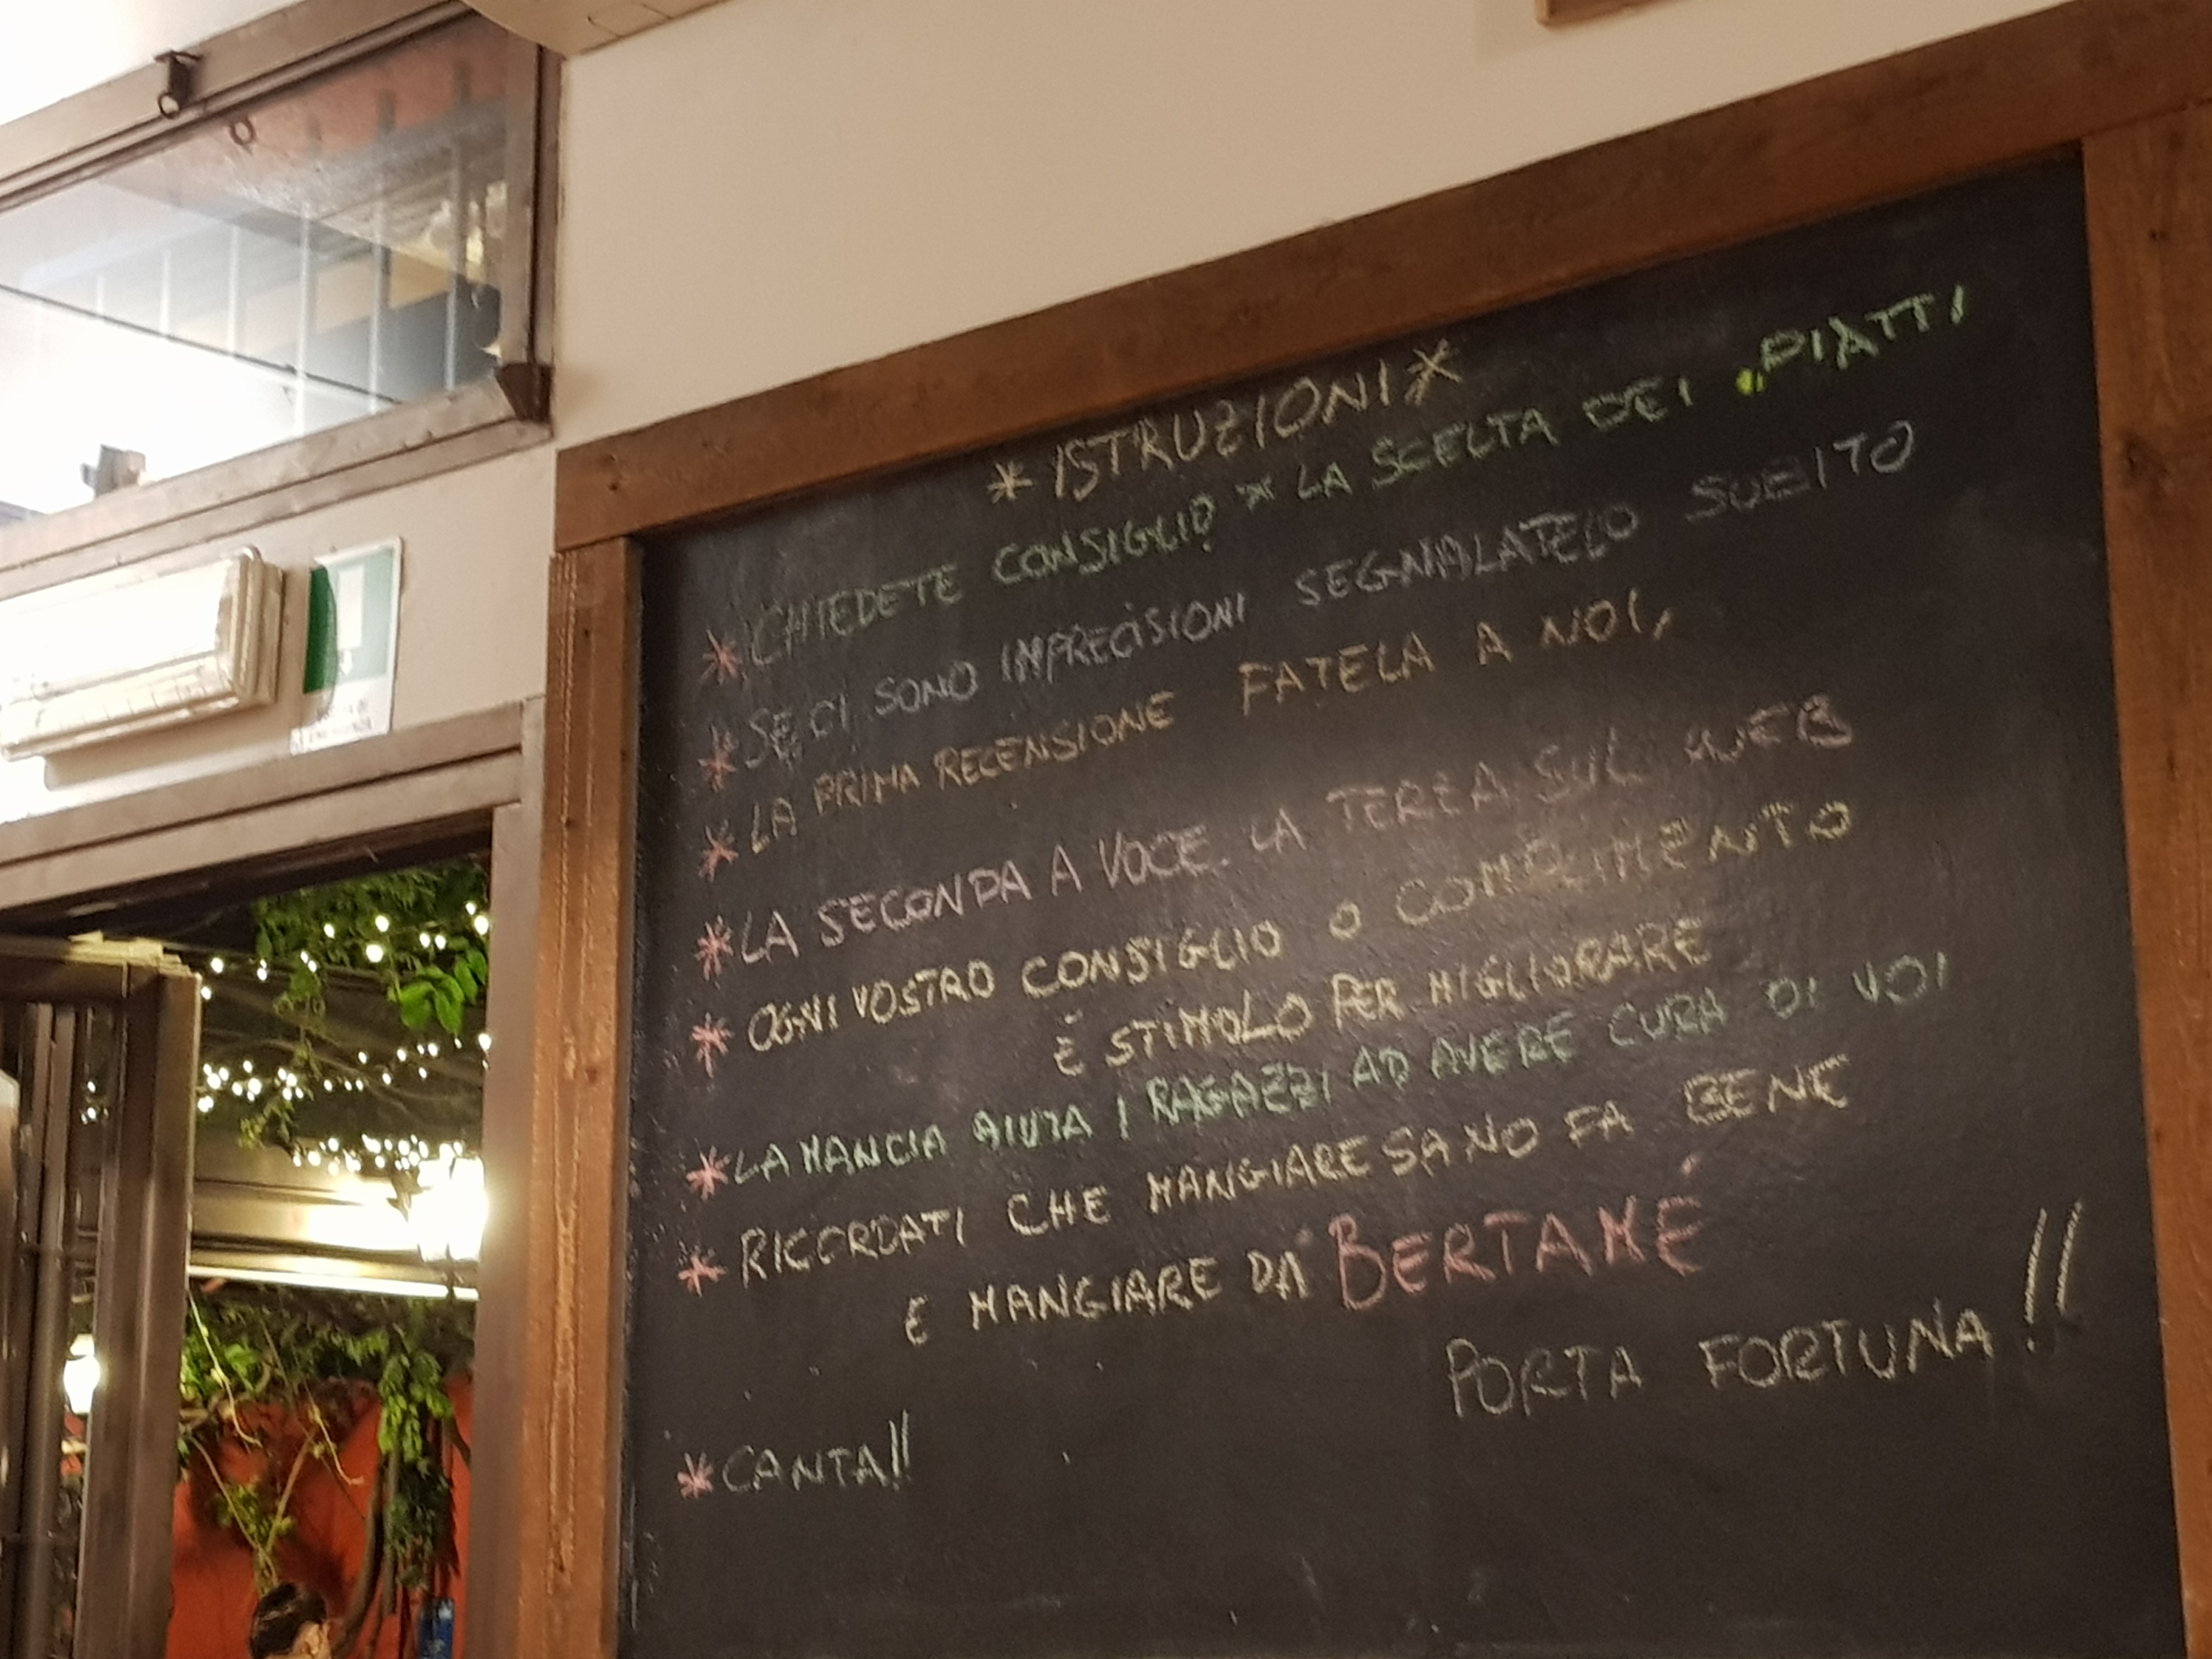 * ISTRUZIONI *
* CHIEDETE CONSIGLIO X LA SCELTA DEI PIATTI
* SE CI SONO IMPRECISIONI SEGNALATELO SUBITO
* LA PRIMA RECENSIONE FATELA A NOI,
* LA SECONDA A VOCE. LA TERZA SUL WEB
* OGNI VOSTRO CONSIGLIO O COMPLIMENTO
È STIMOLO PER MIGLIORARE
* LA MANCIA AIUTA I RAGAZZI AD AVERE CURA DI VOI
* RICORDATI CHE MANGIARE SANO FA BENE
E MANGIARE DA BERTAMÉ
PORTA FORTUNA!!
* CANTA!!